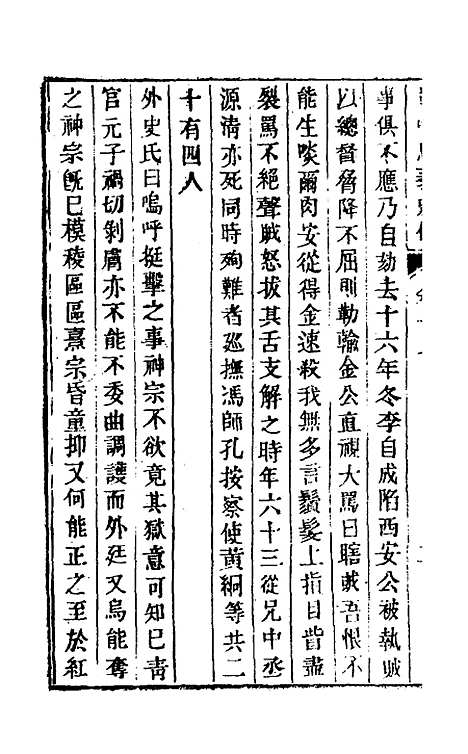 事俱不應乃自劾去十六年冬李自成陷西安公被執賊
以總督脅降不屈則勒輸金公直視大罵曰瞎賊吾恨不
能生啖爾肉安從得金速殺我無多言鬚髮上指目眥盡
裂罵不絕聲賊怒拔其舌支解之時年六十三從兄中丞
源清亦死同時殉難者巡撫馮師孔按察使黃絅等共二
十有四人
外史氏曰嗚呼挺擊之事神宗不欲竟其獄意可知已靑
官元子禍切剝膚亦不能不委曲調護而外廷又烏能奪
之神宗旣已模稜區區熹宗昏童抑又何能正之至於紅